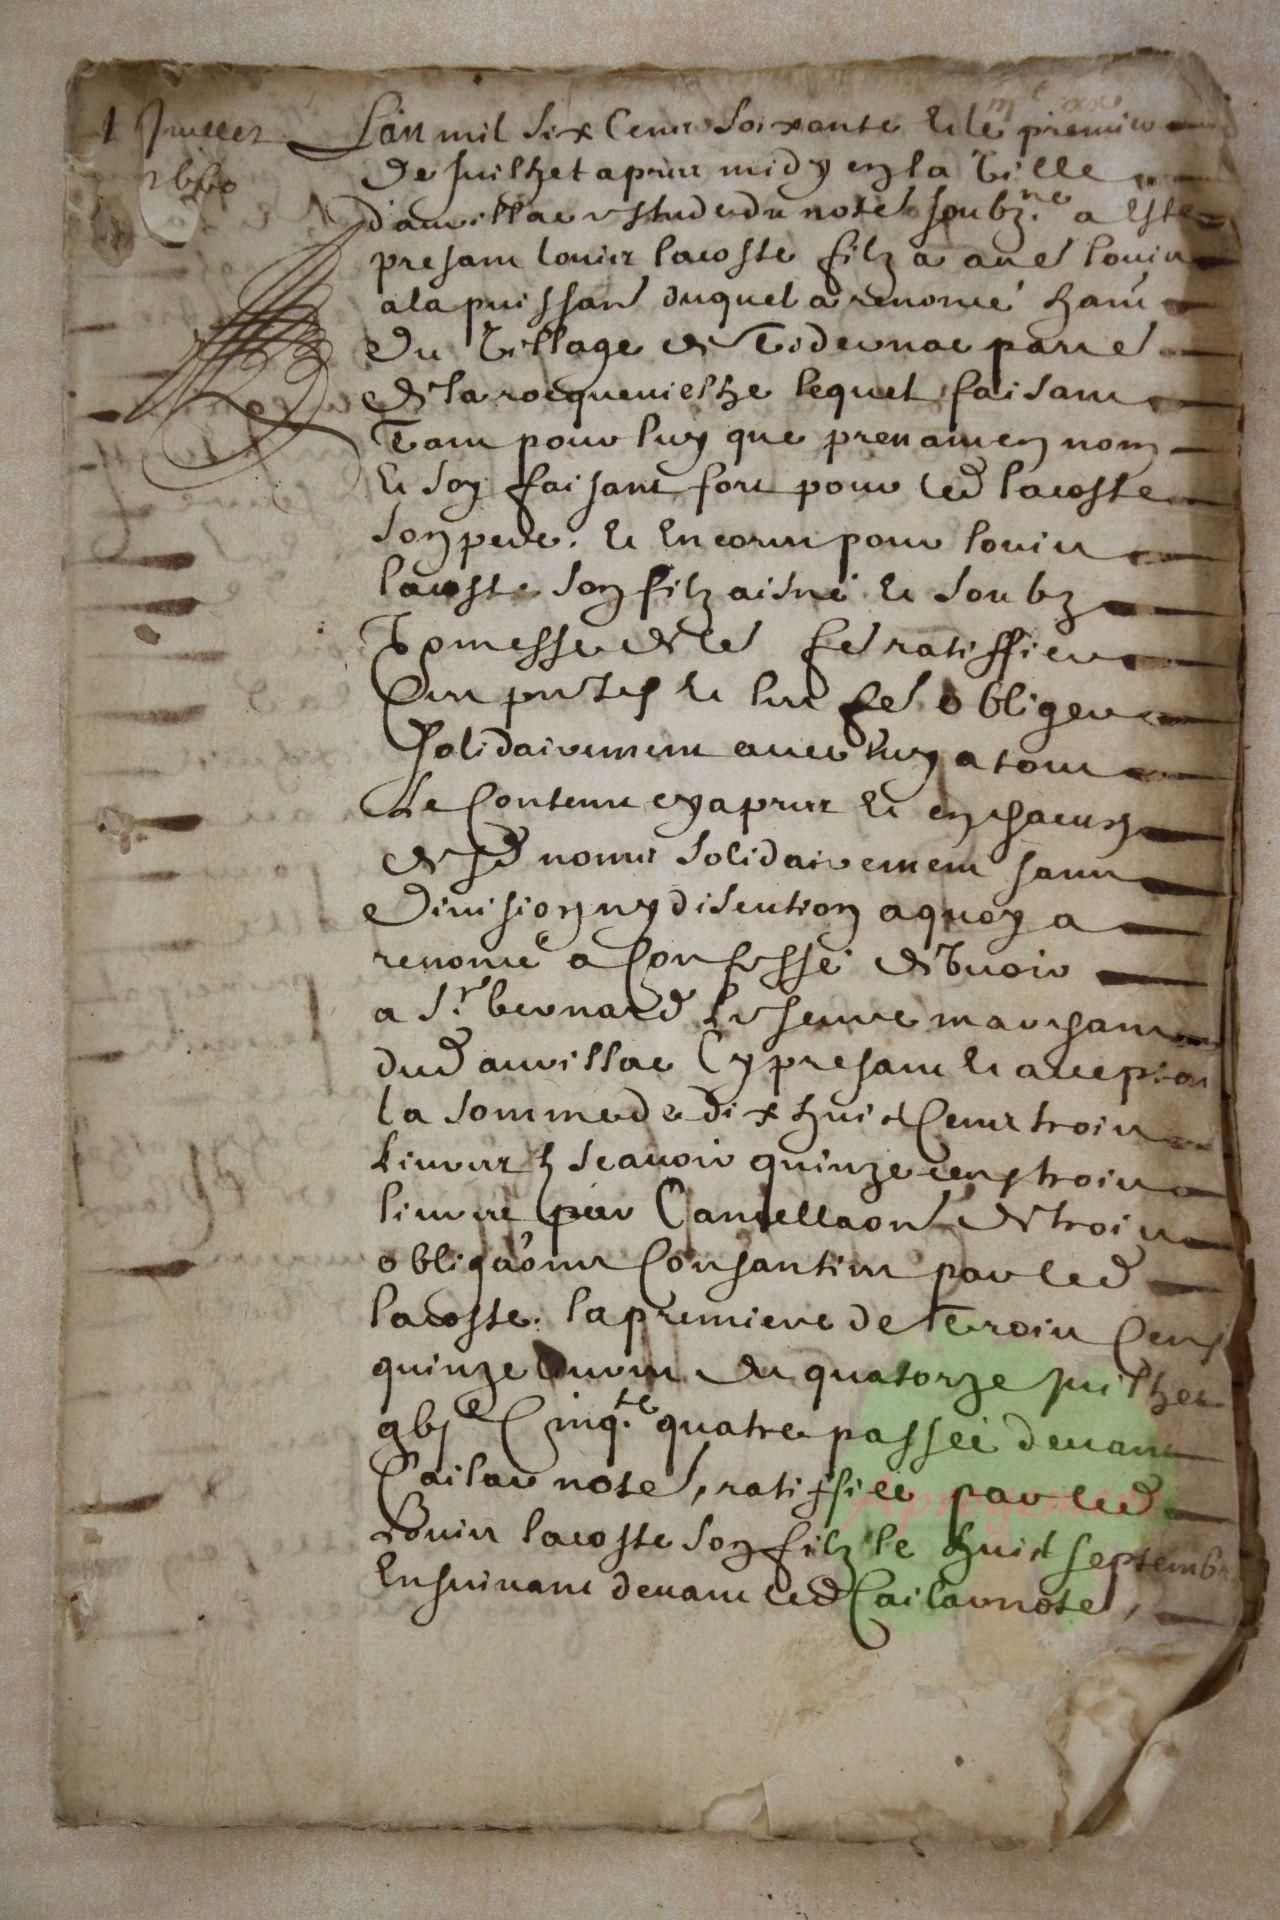 1 Juillet
1660
L'an mil six Cens soixante & le premier
de Juilhet apres midy en la ville
d'auvillac estude du note soubzne a Este
presant louis lacoste filz a autre louis
a la puissance duquel a renoncé habi
du village de parre
de la rocquevielhe lequel faisant
Tant pour luy que prenant en nom
& soy faisant fort pour led lacoste
son pere. & Encores pour louis
lacoste son filz aisné & soubz
promesse de le fe ratiffier
Ces pntes & les fe obliger
solidairement avec luy a tout
le Contenu cy apres & en chacun
desd noms solidairement sans
division ny discution a quoy a
renoncé a Confessé devoir
a Sr bernard marchant
dud auvillac Cy presant & acceptan
la somme de dix huict Cens trois
livres & scavoir quinze cens trois
livres par Cancellaon de trois
obligaons Consanties par led
lacoste. la premiere de Trois Cens
quinze livres du quatorze Juilhet
gbjc Cinqte quatre passée devant
Cailar note, ratiffiée par led
Louis lacoste son filz le huict septembr
Ensuivant devant led Cailar note,